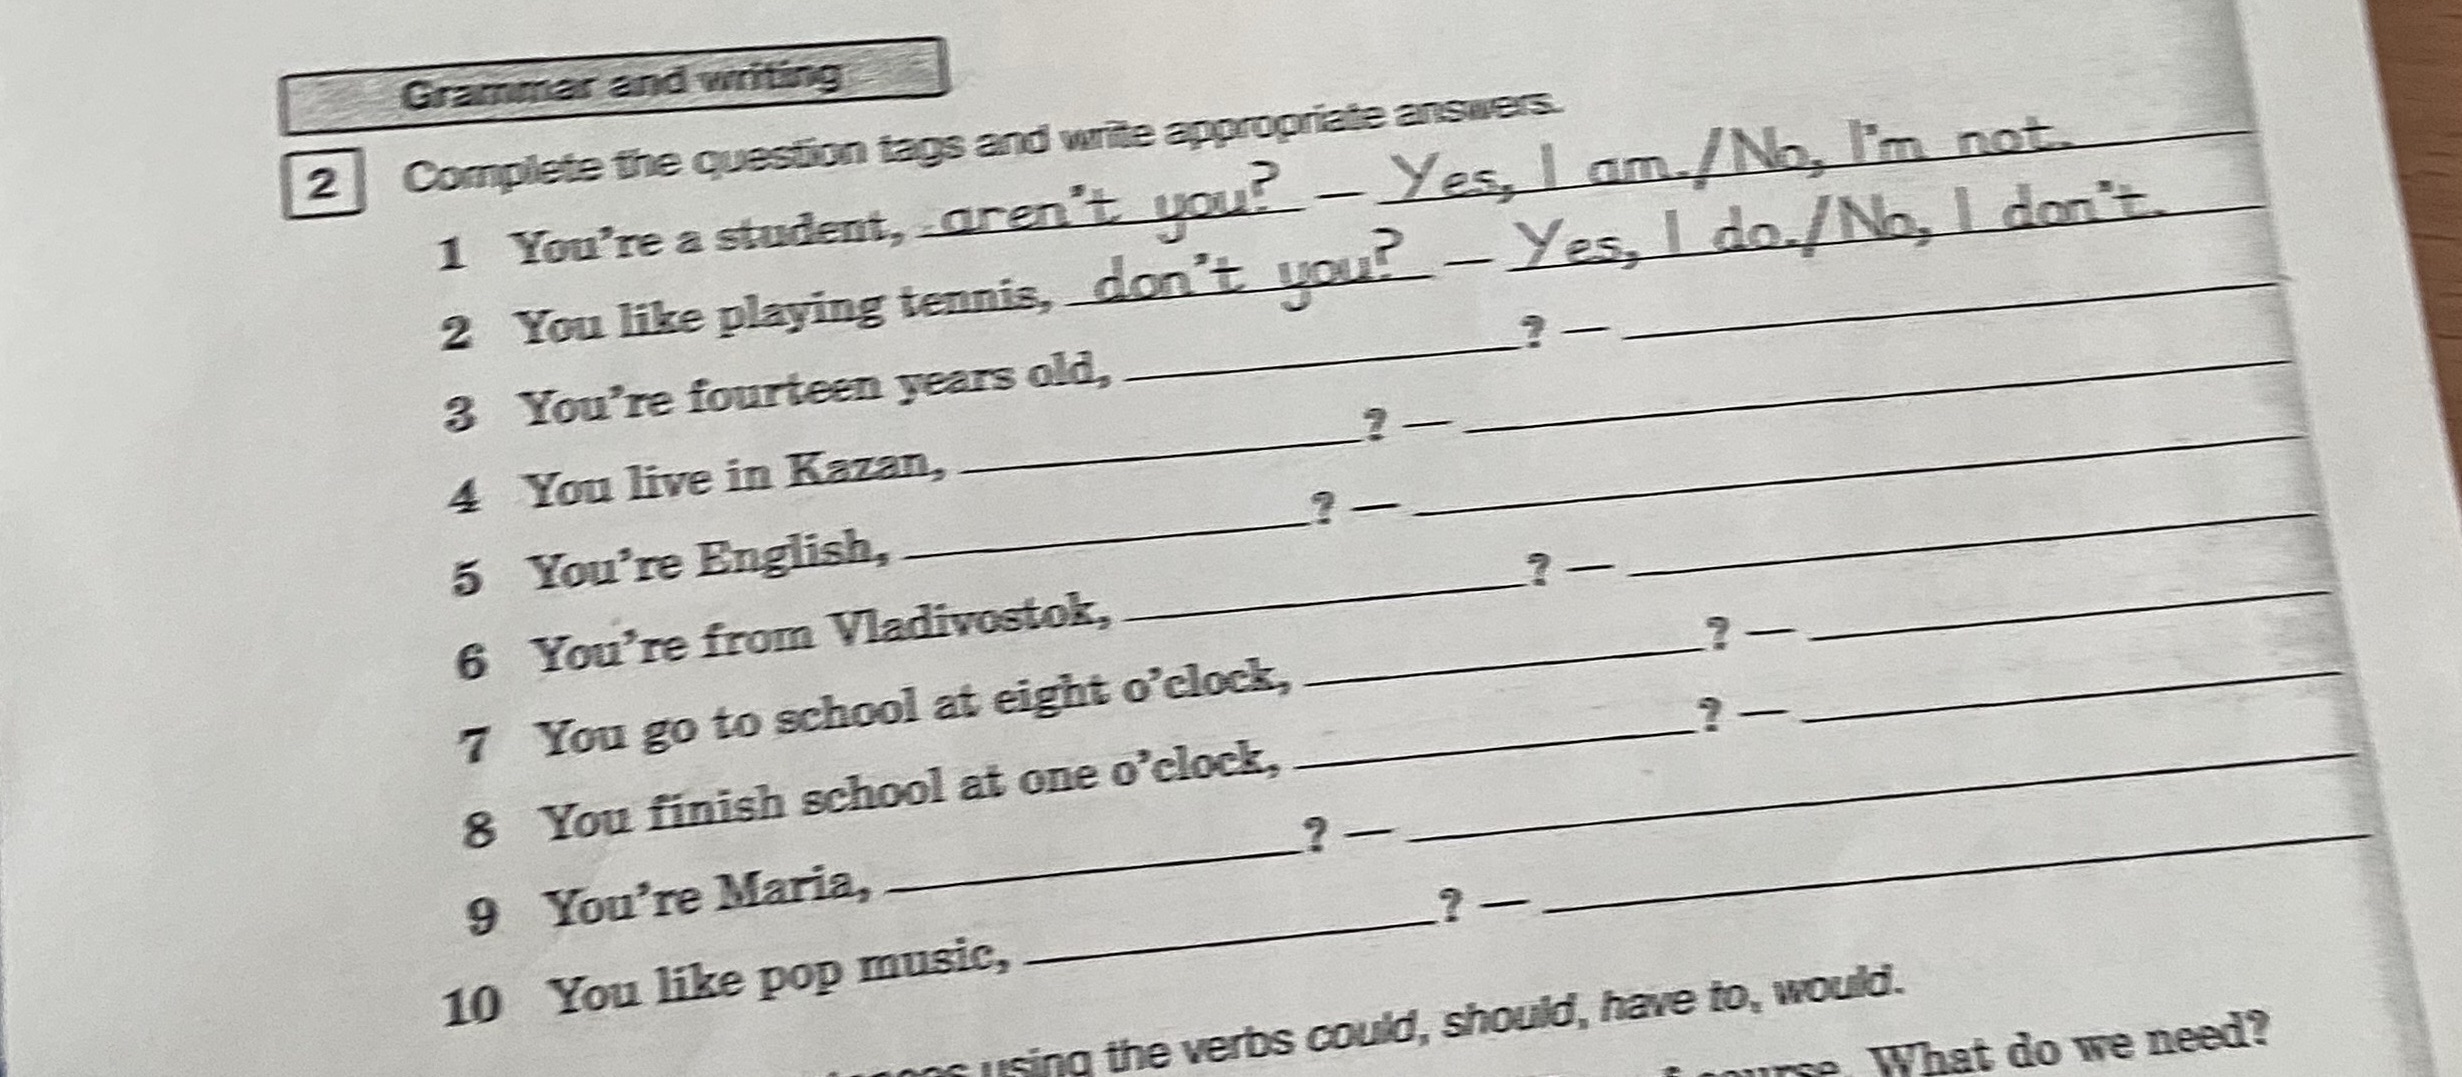 Grammar and writing
2 Complete the question tags and write appropriate answers.
1 You're a student, aren't you? — Yes, I am./No, I'm not.
2 You like playing tennis, don't you? — Yes, I do./No, I don't.
3 You're fourteen years old, ? —
4 You live in Kazan, ? —
5 You're English, ? —
6 You're from Vladivostok, ? —
7 You go to school at eight o'clock, ? —
8 You finish school at one o'clock, ? —
9 You're Maria, ? —
10 You like pop music, ? —
using the verbs could, should, have to, would.
What do we need?